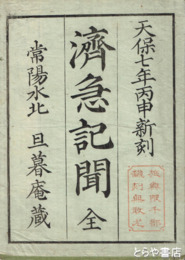 天保七年丙申新刻
濟急記聞 全
常陽水北 旦暮庵藏
とらや書店